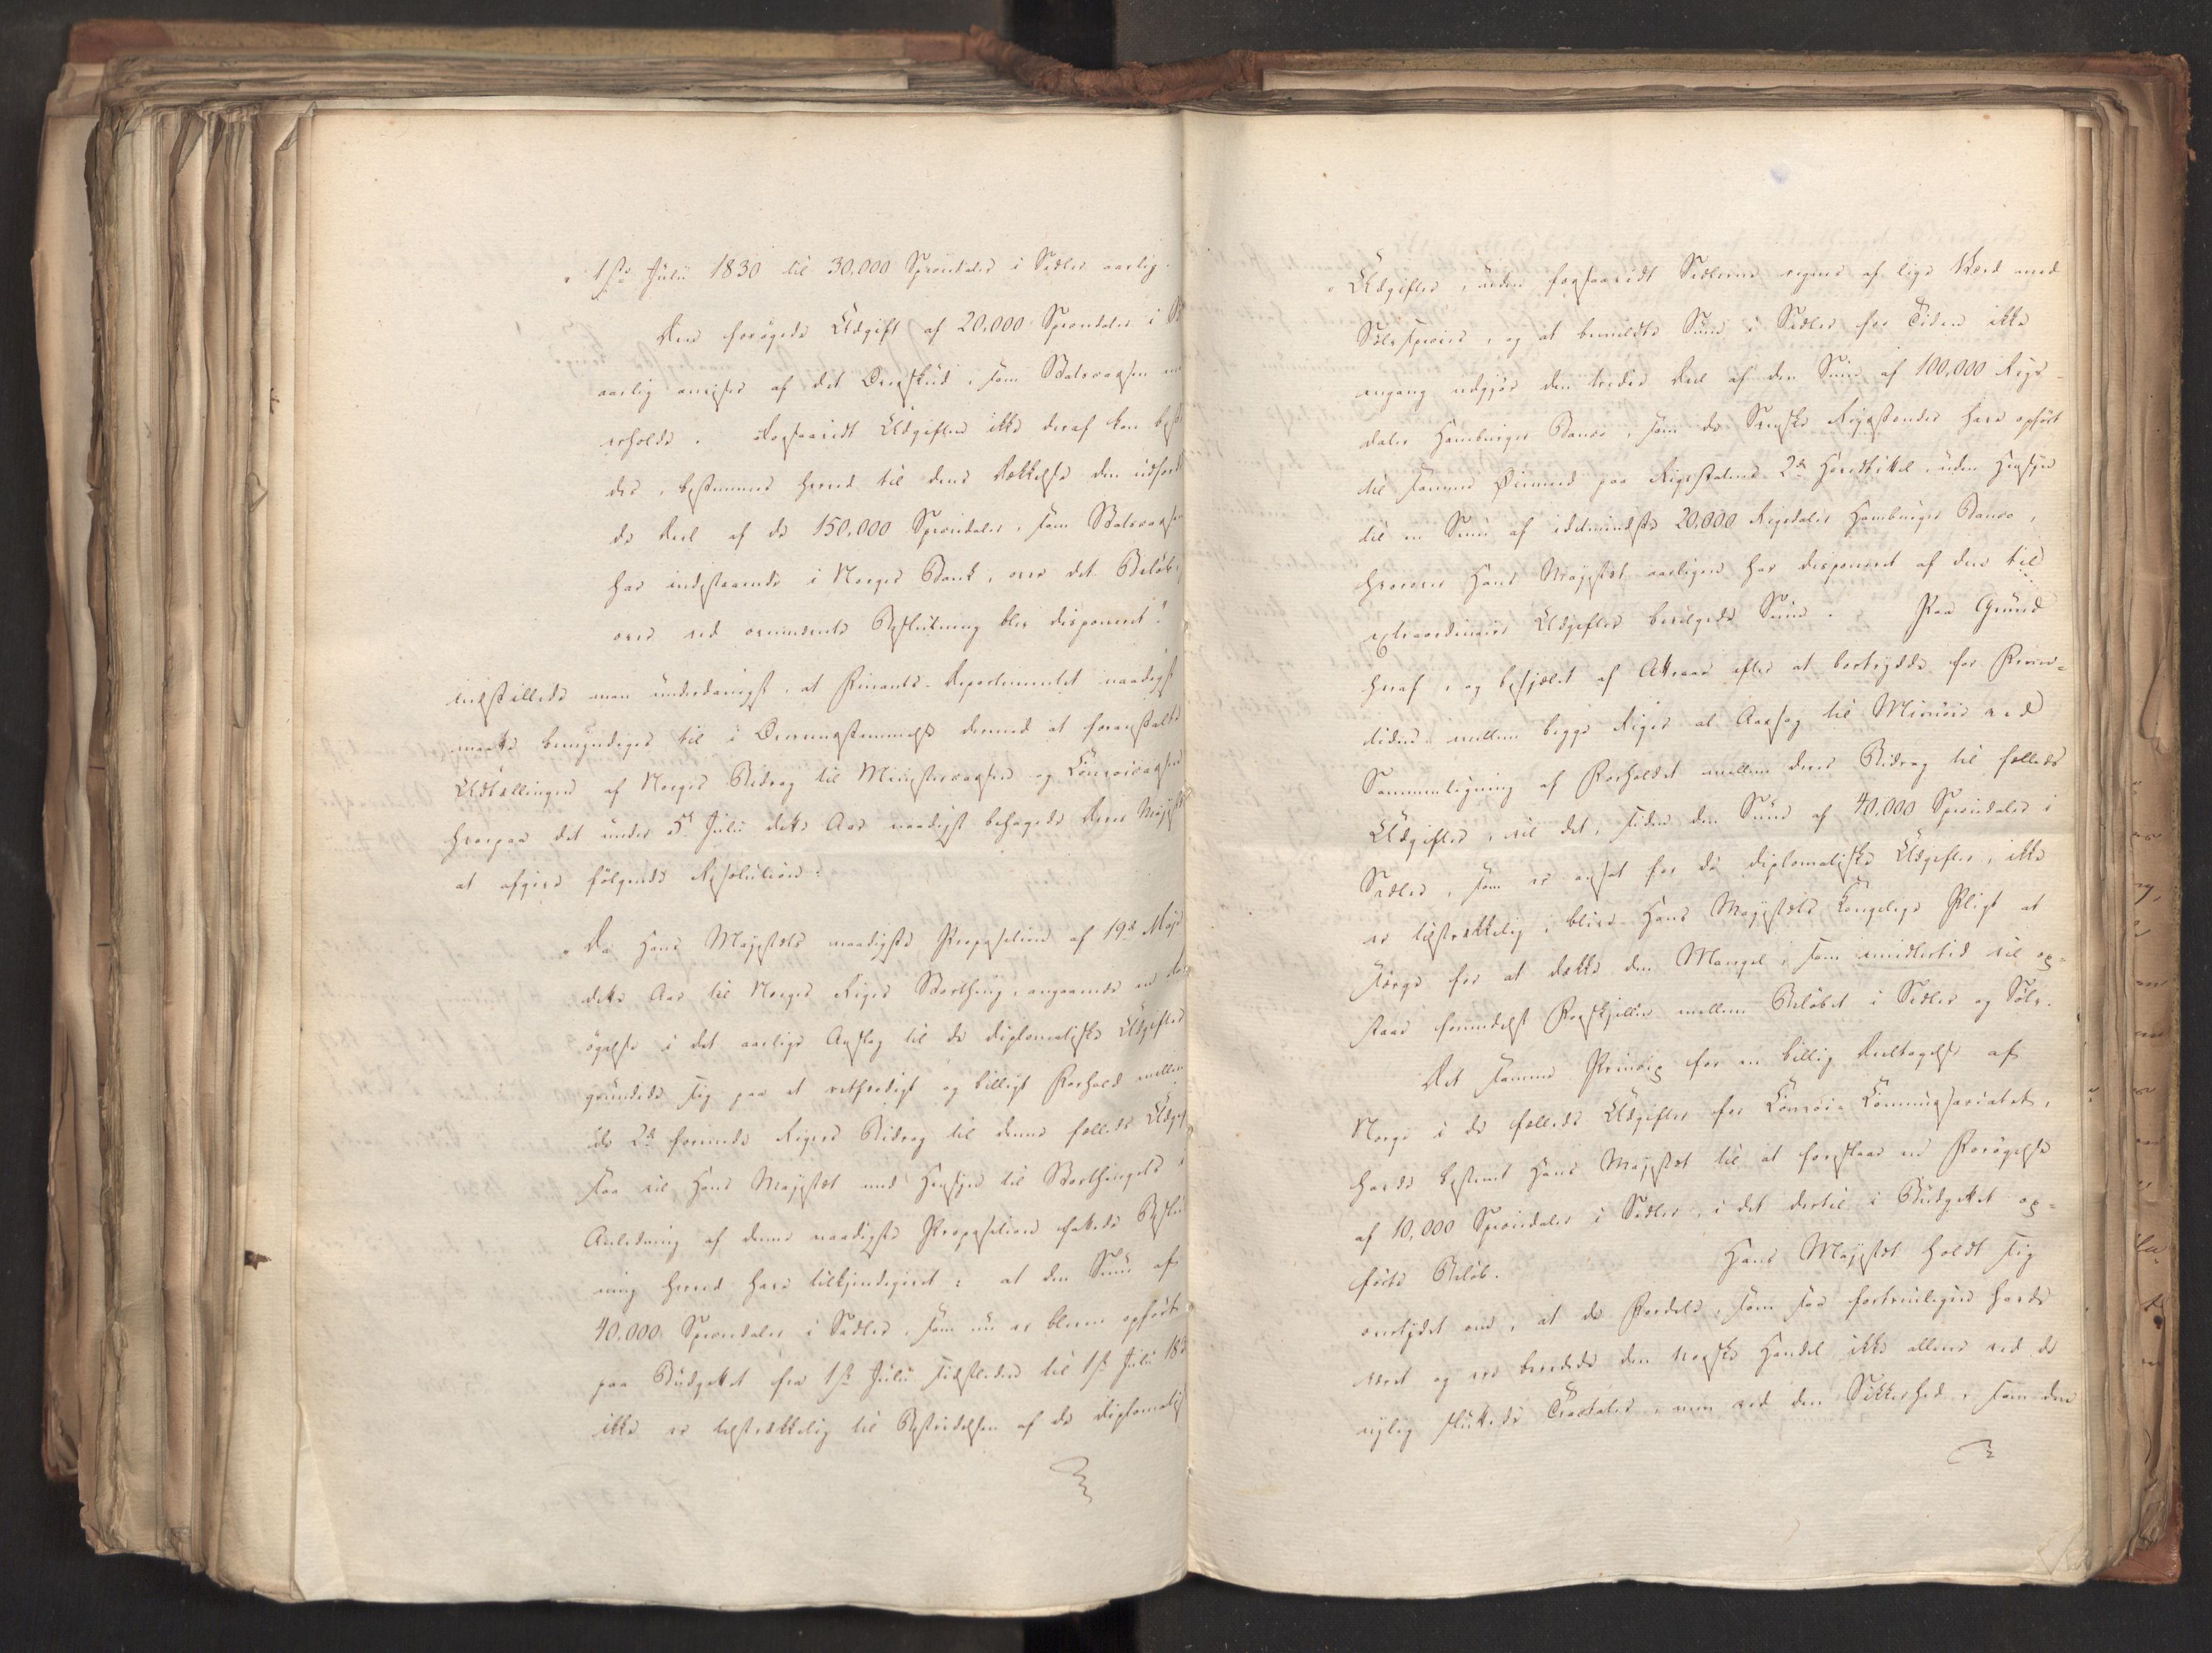 "1ste Julii 1830 til 30,000 Speciedaler i Sedler aarlig.
Den forøgede Udgift af 20,000 Speciedaler i
aarlig anvises af det Overskud, som Statscassen
erholde. Forsaavidt Udgiften ikke deraf kan
des, bestemmes herved til dens Dækkelse den
de Deel af de 150,000 Speciedaler, som Statscassen
har indestaaende i Norges Bank, over det Beløb,
over ved ovennævnte Beslutning blev disponeret."
indstillede man underdanigst, at Finants-Departementet naadigst
maatte bemyndiges til i Overeensstemmelse dermed at foranstalte
Udtællingen af Norges Bidrag til Ministercassen og Consulcassen
hvorpaa det under 5te Julii dette Aar naadigst behagede Deres
at afgive følgende Resolution:
"Da Hans Majestæts naadigste Proposition af 19de Maji
dette Aar til Norges Riges Storthing, angaaende en
øgelse i det aarlige Anslag til de diplomatiske Udgifter
grundede sig paa et retfærdigt og billigt Forhold mellem
de 2de forenede Rigers Bidrag til denne fælleds
saa vil Hans Majestæt med Hensyn til Storthingets i
Anledning af denne naadigste Proposition fattede
ning herved have tilkjendegivet: at den Sum af
40,000 Speciedaler i Sedler, som nu er bleven opført
paa Budgettet fra 1ste Julii sidstleden til 1ste Julii
ikke er tilstrækkelig til Bestridelsen af de
"Udgifter, uden forsaavidt Sedlerne regnes af lige Værd med
Sølv Species, og at bemeldte Sum i Sedler for Tiden ikke
engang udgjør den tredie Deel af den Sum af 100,000 Rigs-
daler Hamburger Banco, som de Svenske Rigsstænder have opført
til samme Øiemed paa Rigsstatens 2den Hovedtitel, uden Hensyn
til en Sum af idetmindste 20,000 Rigsdaler Hamburger Banco,
hvorover Hans Majestæt aarligen har disponeret af den til
extraordinaire Udgifter bevilgede Sum. Paa Grund
heraf, og besjælet af Attraae efter at bortrydde for Frem-
tiden mellem begge Riger al Aarsag til Misnøie ved
Sammenligning af Forholdet mellem deres Bidrag til fælleds
Udgifter, vil det, siden den Sum af 40,000 Speciedaler i
Sedler, som er ansat for de diplomatiske Udgifter, ikke
er tilstrækkelig, blive Hans Majestæts Kongelige Pligt at
sørge for at dække den Mangel, som imidlertid vil op-
staae formedelst Forskjellen mellem Beløbet i Sedler og Sølv.
Det samme Princip for en billig Deeltagelse af
Norge i de fælleds Udgifter for Consul-Commissariatet,
havde bestemt Hans Majestæt til at foreslaae en Forøgelse
af 10,000 Speciedaler i Sedler, i det dertil i Budgettet op-
førte Beløb. Hans Majestæt holdt sig
overtydet om, at de Fordele, som saa fortrinligen havde
været og ere beredede den norske Handel ikke allene ved de
nylig sluttede Tractater, men ved den Sikkerhed, som den